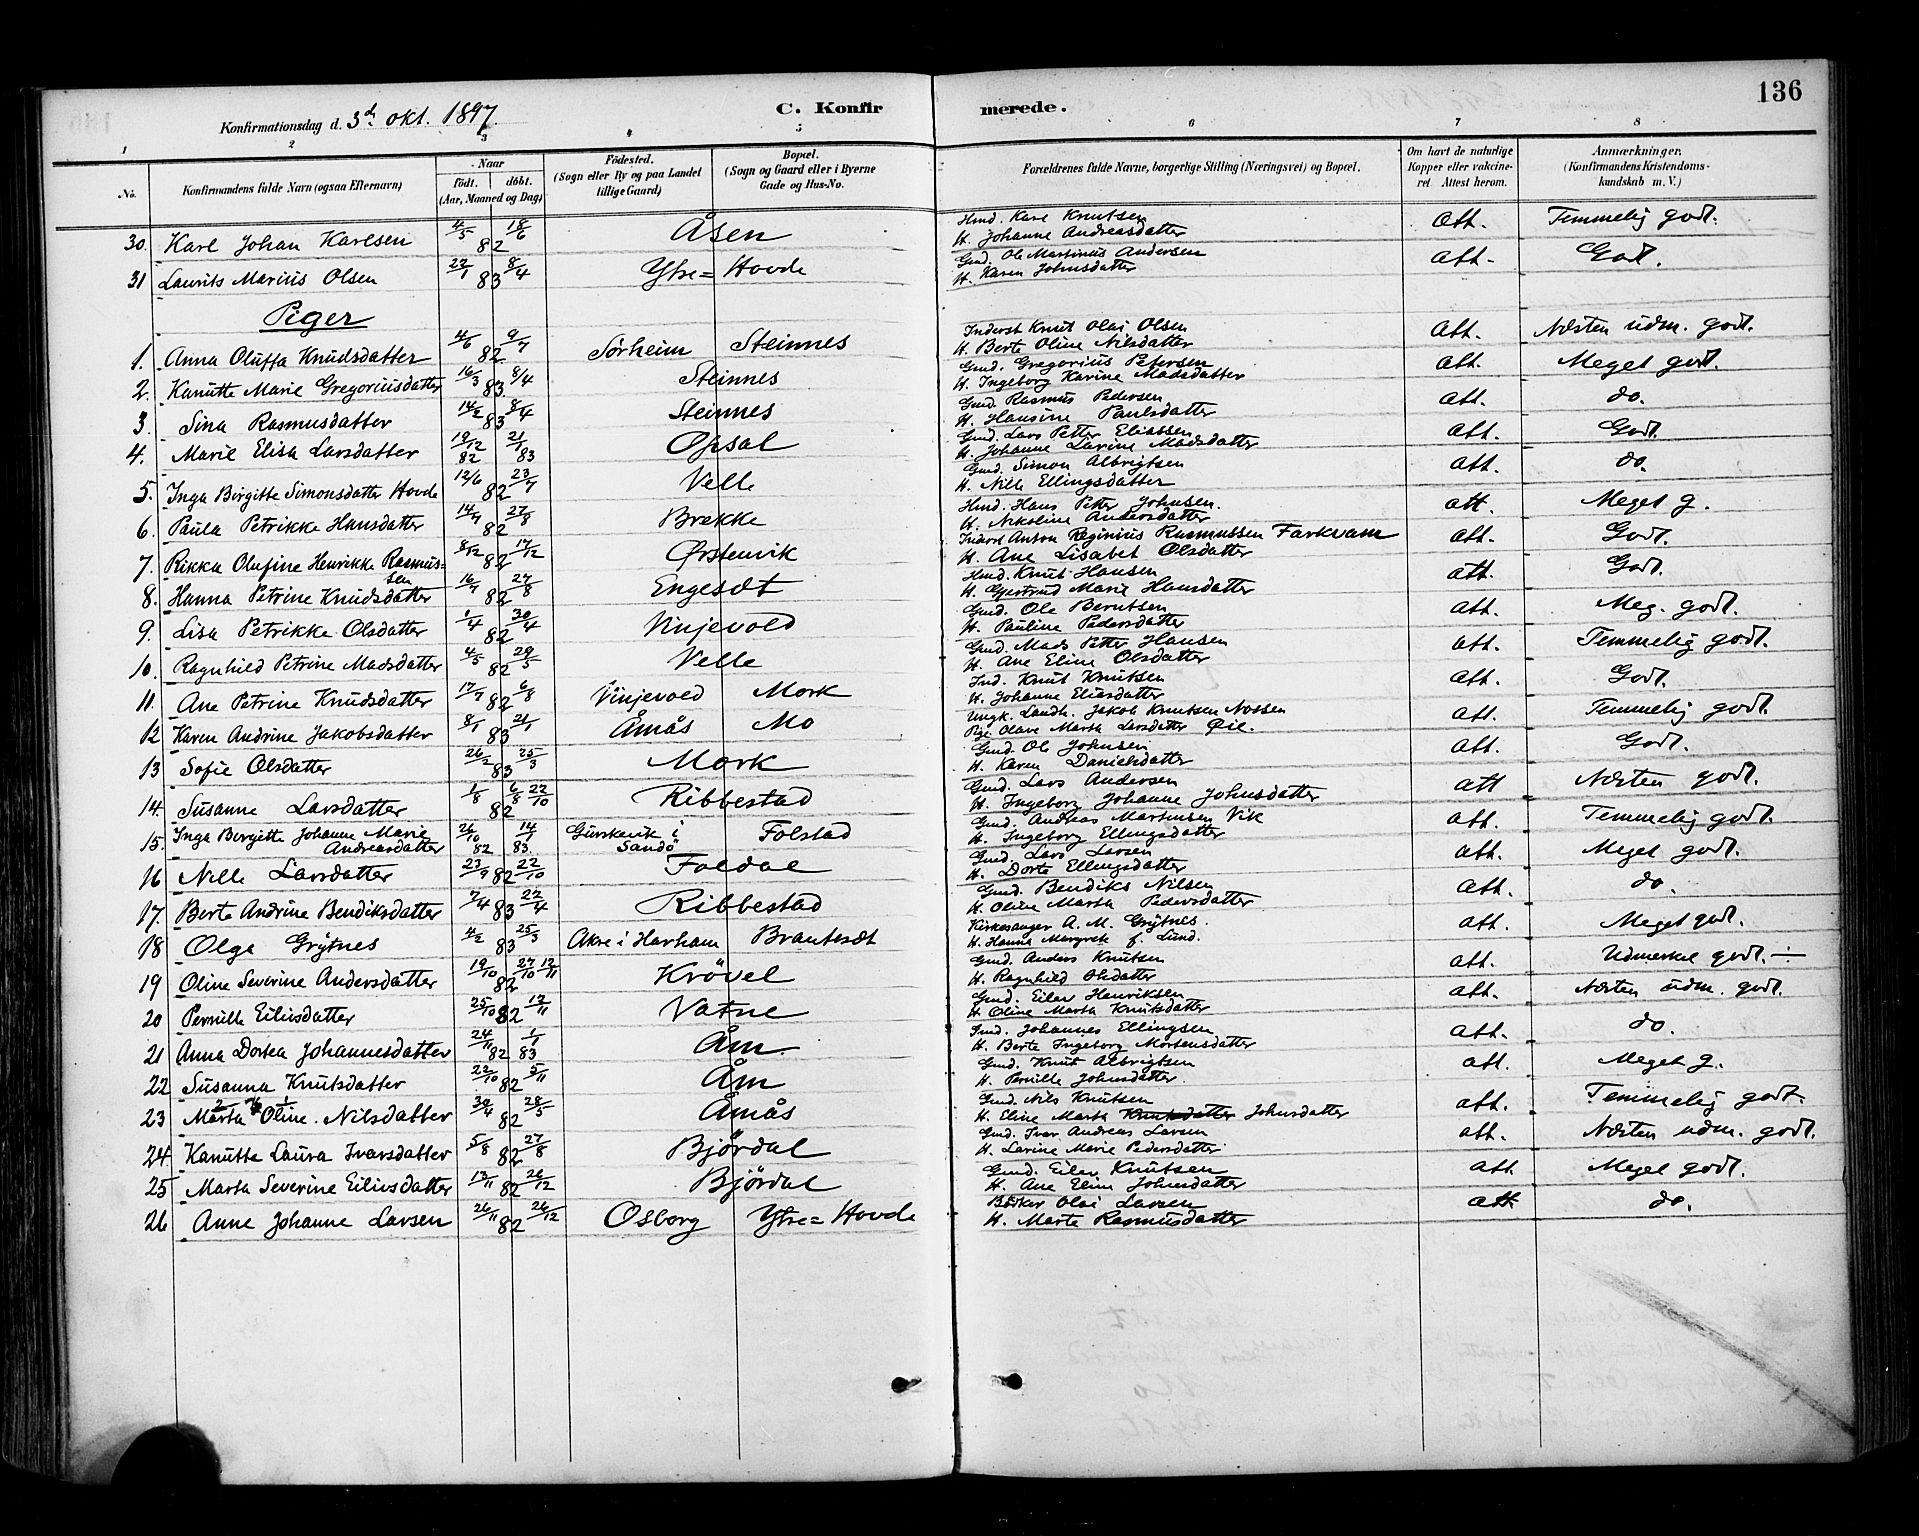 136
C. Konfirmerede.
Konfirmationsdag d. 3d okt. 1897.
1 2 3 4 5 6 7 8
No. Konfirmandens fulde Navn (ogsaa Efternavn) Naar født. døbt. (Aar, Maaned og Dag) Fødested. (Sogn eller By og paa Landet tillige Gaard) Bopæl. (Sogn og Gaard eller i Byerne Gade og Hus-No. Forældrenes fulde Navne, borgerlige Stilling (Næringsvei) og Bopæl. Om havt de naturlige Kopper eller vakcineret. Attest herom. Anmærkninger. (Konfirmandens Kristendomskundskab m. V.)
30. Karl Johan Karlsen 4/5 82 18/6 Åsen Gmd. Karl Knutsen H. Johanne Andreasdatter att. Temmelig godt.
31 Laurits Marius Olsen 22/1 83 8/4 Ytre=Hovde Gmd. Ole Martinus Andersen H. Karen Johnsdatter att. Godt.
Piger
1. Anna Oluffa Knudsdatter 4/6 82 9/7 Sörheim Steinnes Inderst Knut Olai Olsen H. Berte Oline Nilsdatter att. Næsten udm. godt.
2. Kanutte Marie Gregoriusdatter 16/3 83 8/4 Steinnes Gmd. Gregorius Petersen H. Ingeborg Karine Madsdatter att. Meget godt.
3. Sina Rasmusdatter 14/2 83 8/4 Steinnes Gmd. Rasmus Pedersen H. Hansine Paulsdatter att. do.
4. Marie Elisa Larsdatter 19/12 82 21/1 83 Opsal Gmd. Lars Petter Eliassen H. Johanne Lavine Madsdatter att. Godt.
5. Inga Birgitte Simonsdatter Hovde 12/6 82 23/7 Velle Gmd. Simon Albrigtsen H. Nille Ellingsdatter att. do.
6. Paula Petrikke Hansdatter 14/7 82 27/8 Brekke Hmd. Hans Petter Johnsen. H. Nikoline Andersdatter att. Meget g.
7. Rikka Olufine Henrikke Rasmussen 8/12 82 17/12 Ørstenvik Inderst Anton Reginius Rasmussen Farkvam H. Ane Lisabet Olsdatter att. Godt.
8. Hanna Petrine Knudsdatter 16/7 82 27/8 Engesæt Hmd. Knut Hansen H. Gjertrud Marie Hansdatter att. Godt.
9. Lisa Petrikke Olsdatter 1/4 82 30/4 Vinjevold Gmd. Ole Berntsen H. Pauline Pedersdatter att. Meg. godt.
10. Ragnhild Petrine Madsdatter 4/5 82 29/5 Velle Gmd. Mads Petter Hansen H. Ane Eline Olsdatter att. Temmelig godt.
11. Ane Petrine Knudsdatter 17/7 82 6/8 Vinjevold Mork Ind. Knut Knutsen H. Johanne Eliasdatter att. Godt.
12 Karen Andrine Jakobsdatter 8/1 83 21/1 Åmås Mo Ungk. Landh. Jakob Knutsen Nossen Pige Olave Marta Larsdatter Øie. att. Temmelig godt.
13 Sofie Olsdatter 26/2 83 25/3 Mork Gmd. Ole Johnsen H. Karen Danielsdatter att. Godt.
14. Susanne Larsdatter 1/8 82 6/8 22/10 Ribbestad Gmd. Lars Andersen H. Ingeborg Johanne Johnsdatter att Næsten godt.
15. Inga Birgitte Johanne Marie Andreasdatter 26/10 82 14/1 83. Gurskevik i Sandö Folstad Gmd. Andreas Martinsen Vik H. Ingeborg Ellingsdatter att. Temmelig godt.
16 Nille Larsdatter 23/9 82 22/10 Foldal Gmd. Lars Larsen H. Dorte Ellingsdatter att. Meget godt.
17. Berte Andrine Bendiksdatter 7/4 83 22/4 Ribbestad Gmd. Bendiks Nilsen H. Oline Marta Pedersdatter att. do.
18 Olga Grytnes 4/2 83 25/3 Akre i Harham Brautesæt Kirkesanger A. M. Grytnes. H. Hanna Margrete f. Lund. att. Meget godt.
19 Oline Severine Andersdatter 19/10 82 27/10 12/11 Krövel Gmd. Anders Knutsen H. Ragnhild Olsdatter att. Udmerket godt. ÷
20 Pernille Eiliusdatter 25/10 82 12/11 Vatne Gmd. Eiler Henriksen H. Oline Marta Knutsdatter att. Næsten udm. godt.
21 Anna Dortea Johannesdatter 24/11 82 1/1 83 Åm Gmd. Johannes Ellingsen H. Berte Ingeborg Mortensdatter att. do.
22 Susanna Knutsdatter 22/10 82 5/11 Åm Gmd. Knut Albrigtsen H. Pernille Johnsdatter. att. Meget g.
23 Marta Oline Nilsdatter 30/4 82 28/5 Åmås Gmd. Nils Knutsen H. Eline Marta Knutsdatter Johnsdatter att. Temmelig godt.
24 Kanutte Laura Ivarsdatter 5/8 82 27/8 Björdal Gmd. Ivar Andreas Larsen H. Lavine Marie Pedersdatter att. Næsten udm. godt.
25 Marta Severine Eiliusdatter 13/11 82 26/12 Björdal Gmd. Eiler Knutsen H. Ane Eline Johnsdatter att Meget godt.
26 Anne Johanne Larsen 26/11 82 26/12 Osborg Ytre=Hovde Olai Larsen H. Marte Rasmusdatter att do.